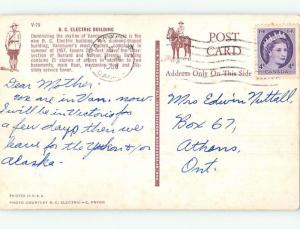 V-75
B. C. ELECTRIC BUILDING
Dominating the skyline of
new B. C. Electric building.
building, Vancouver's
summer of 1957,
section of Burrard and Nelson Streets. Building
contains 21 stories of offices in addition to two
basements, main floor, mezzanine floor and two
penthouse
POST
CARD
Address Only On This Side
CANADA
Dear Mother
we are in Van. now.
will be in Victoria for
a few days then we
leave for the Yukon or
Alaska.
Mrs Edwin Nuttall,
Box 67,
Athens,
Ont.
PRINTED IN U. S. A.
PHOTO COURTESY B. C. ELECTRIC - C. PRYOR